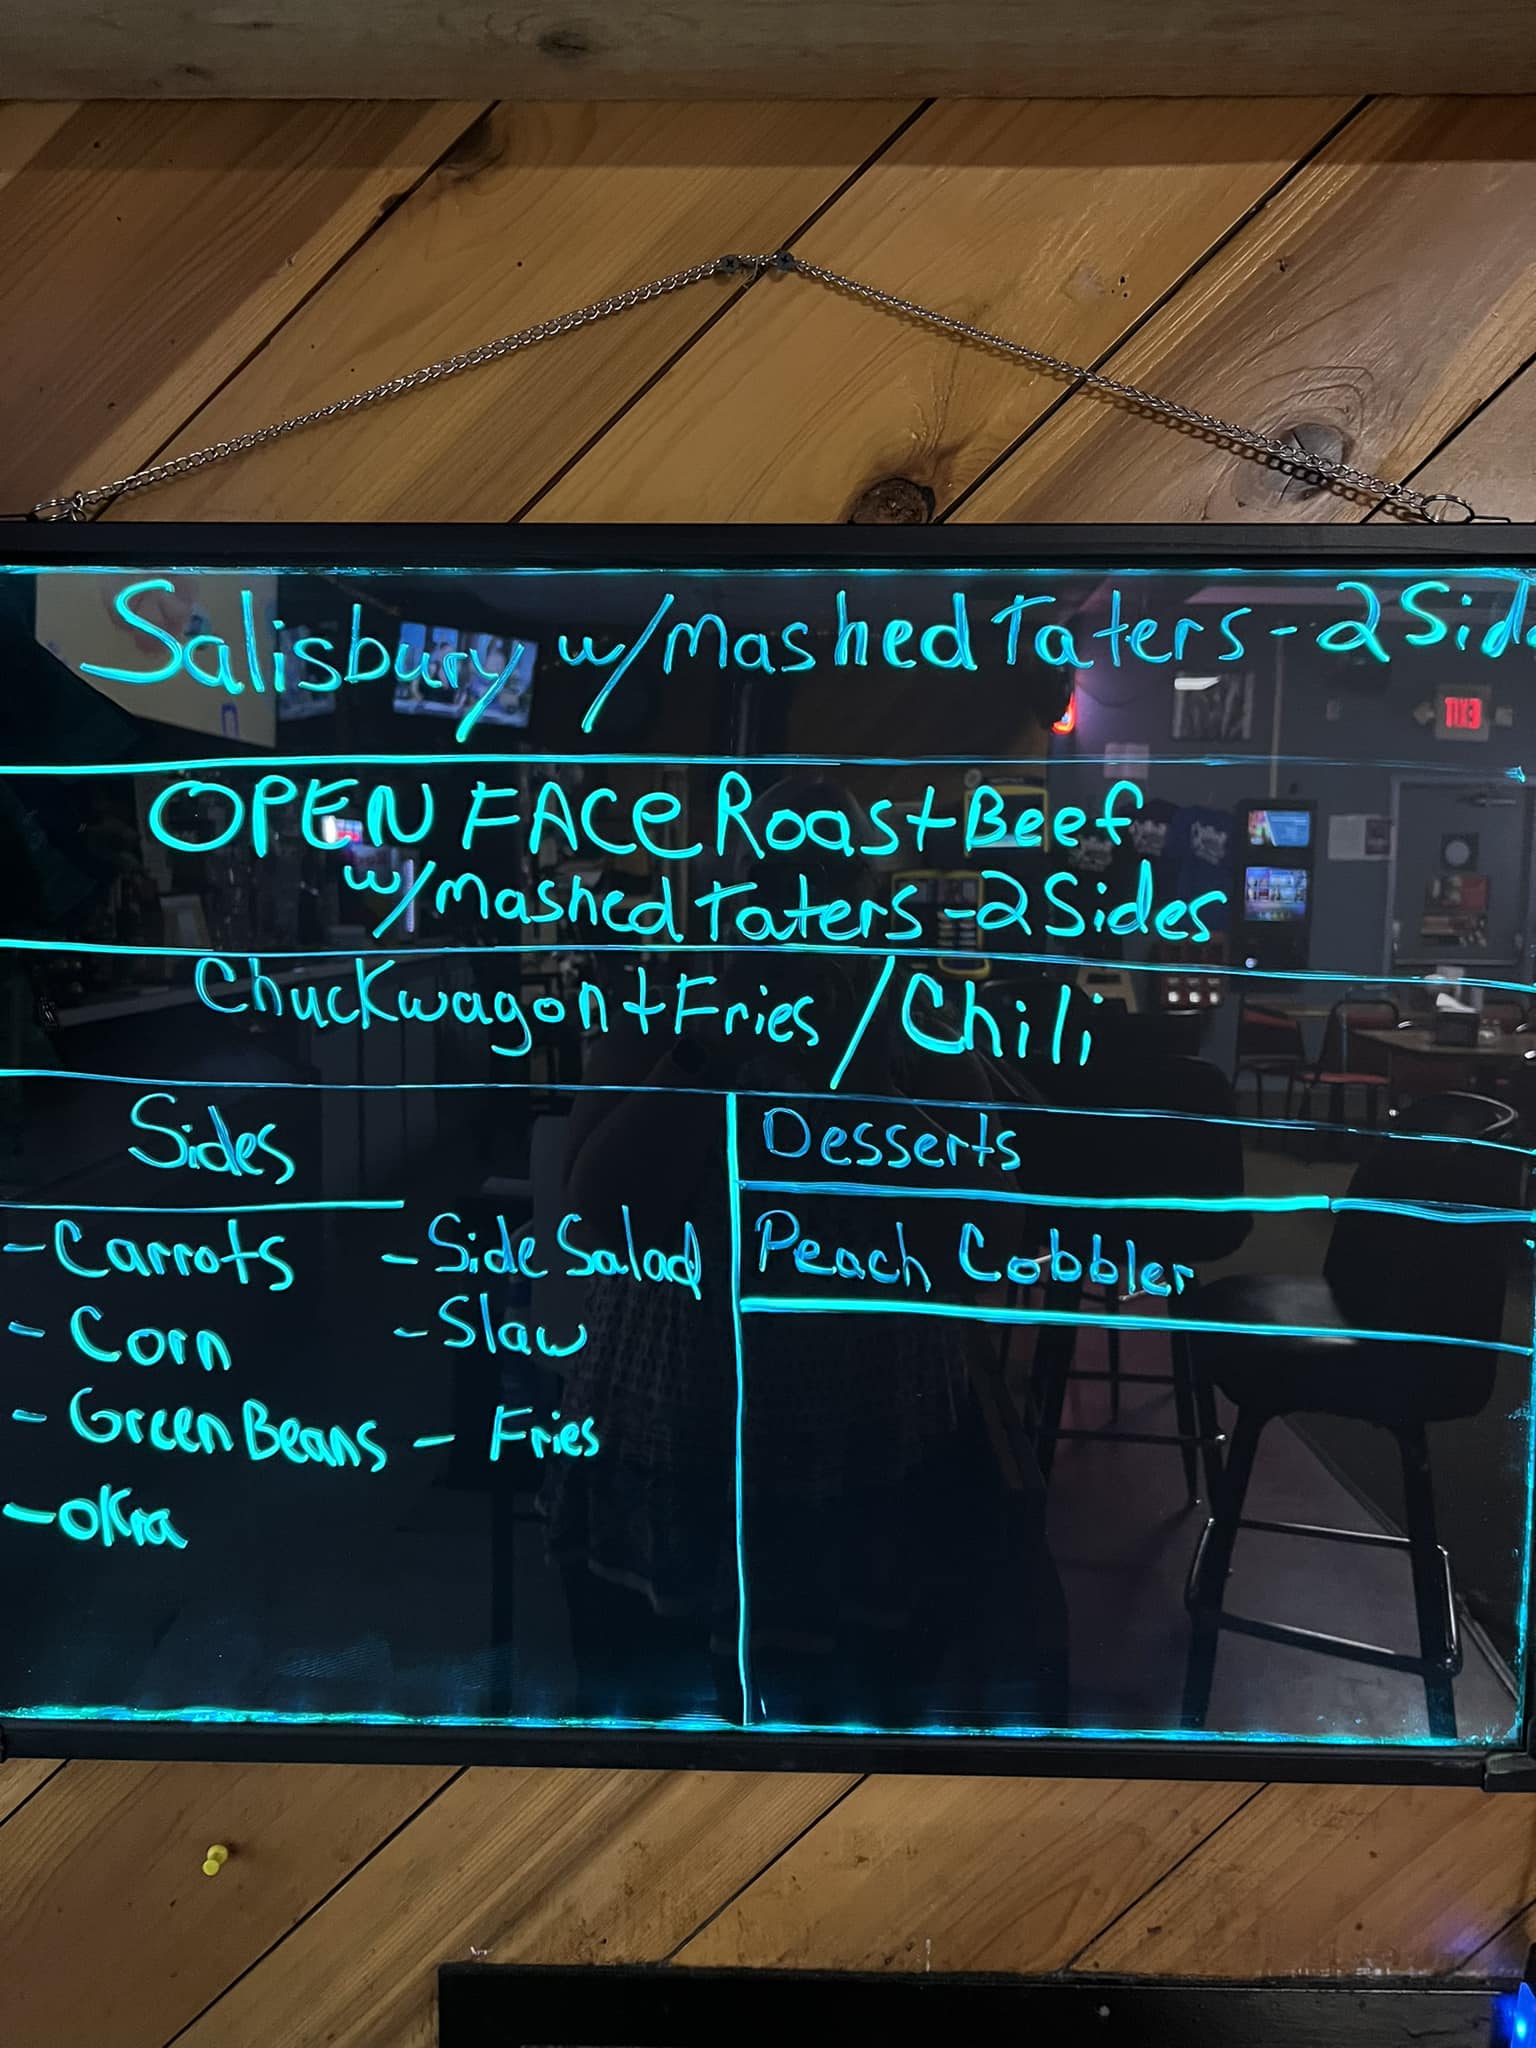 Salisbury w/mashed Taters - 2 Sid
OPEN FACE Roast Beef
w/mashed Taters - 2 Sides
Chuckwagon + Fries / Chili
Sides
Desserts
- Carrots - Side Salad
Peach Cobbler
- Corn - Slaw
- Green Beans - Fries
- Okra
EXIT